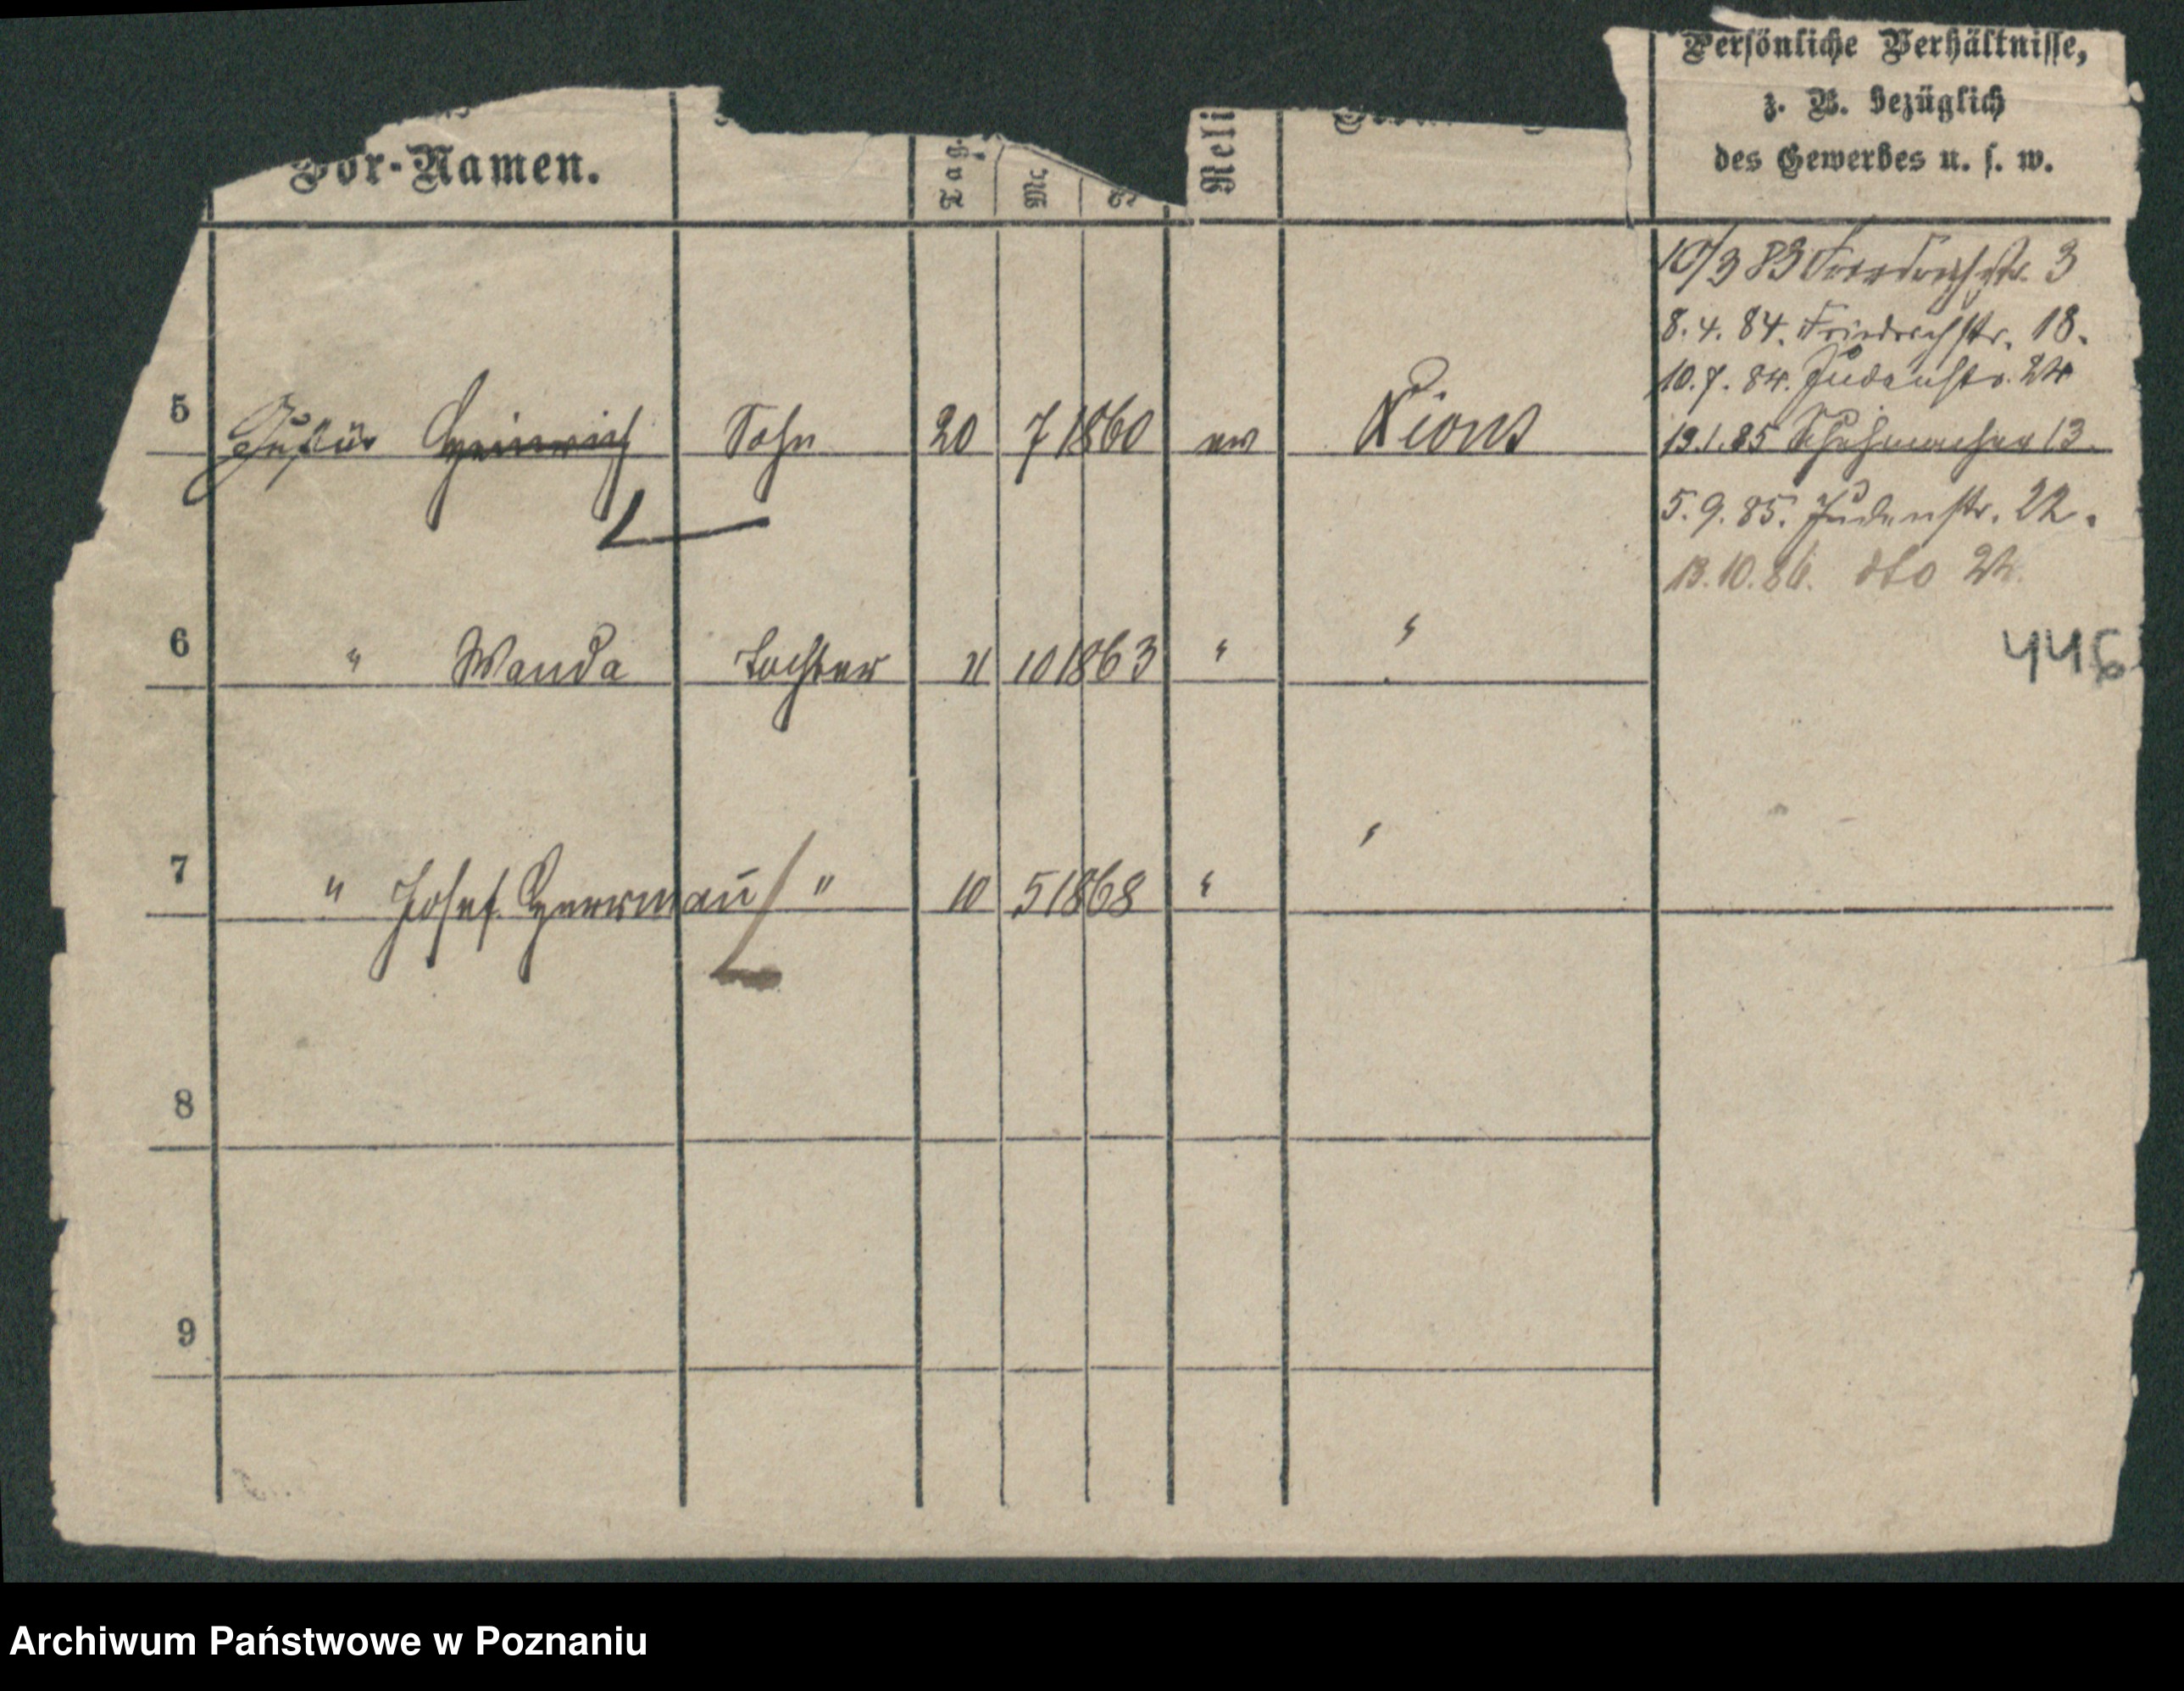 Vor-Namen.
Tag.
Reli
Persönliche Verhältnisse,
z. B. bezüglich
des Gewerbes u. s. w.
10/3 83 Friedrichstr. 3
8. 4. 84. Friedrichstr. 18.
10. 7. 84. Judenstr. 24
5 Heinrich Sohn 20 7 1860 ev Xions
13. 1. 85 Schuhmacher 13.
5. 9. 85. Judenstr. 22.
13. 10. 86. dto 24.
6 " Wanda Tochter 11 10 1863 " "
446
7 " Josef Herrmann " 10 5 1868 " "
8
9
Archiwum Państwowe w Poznaniu